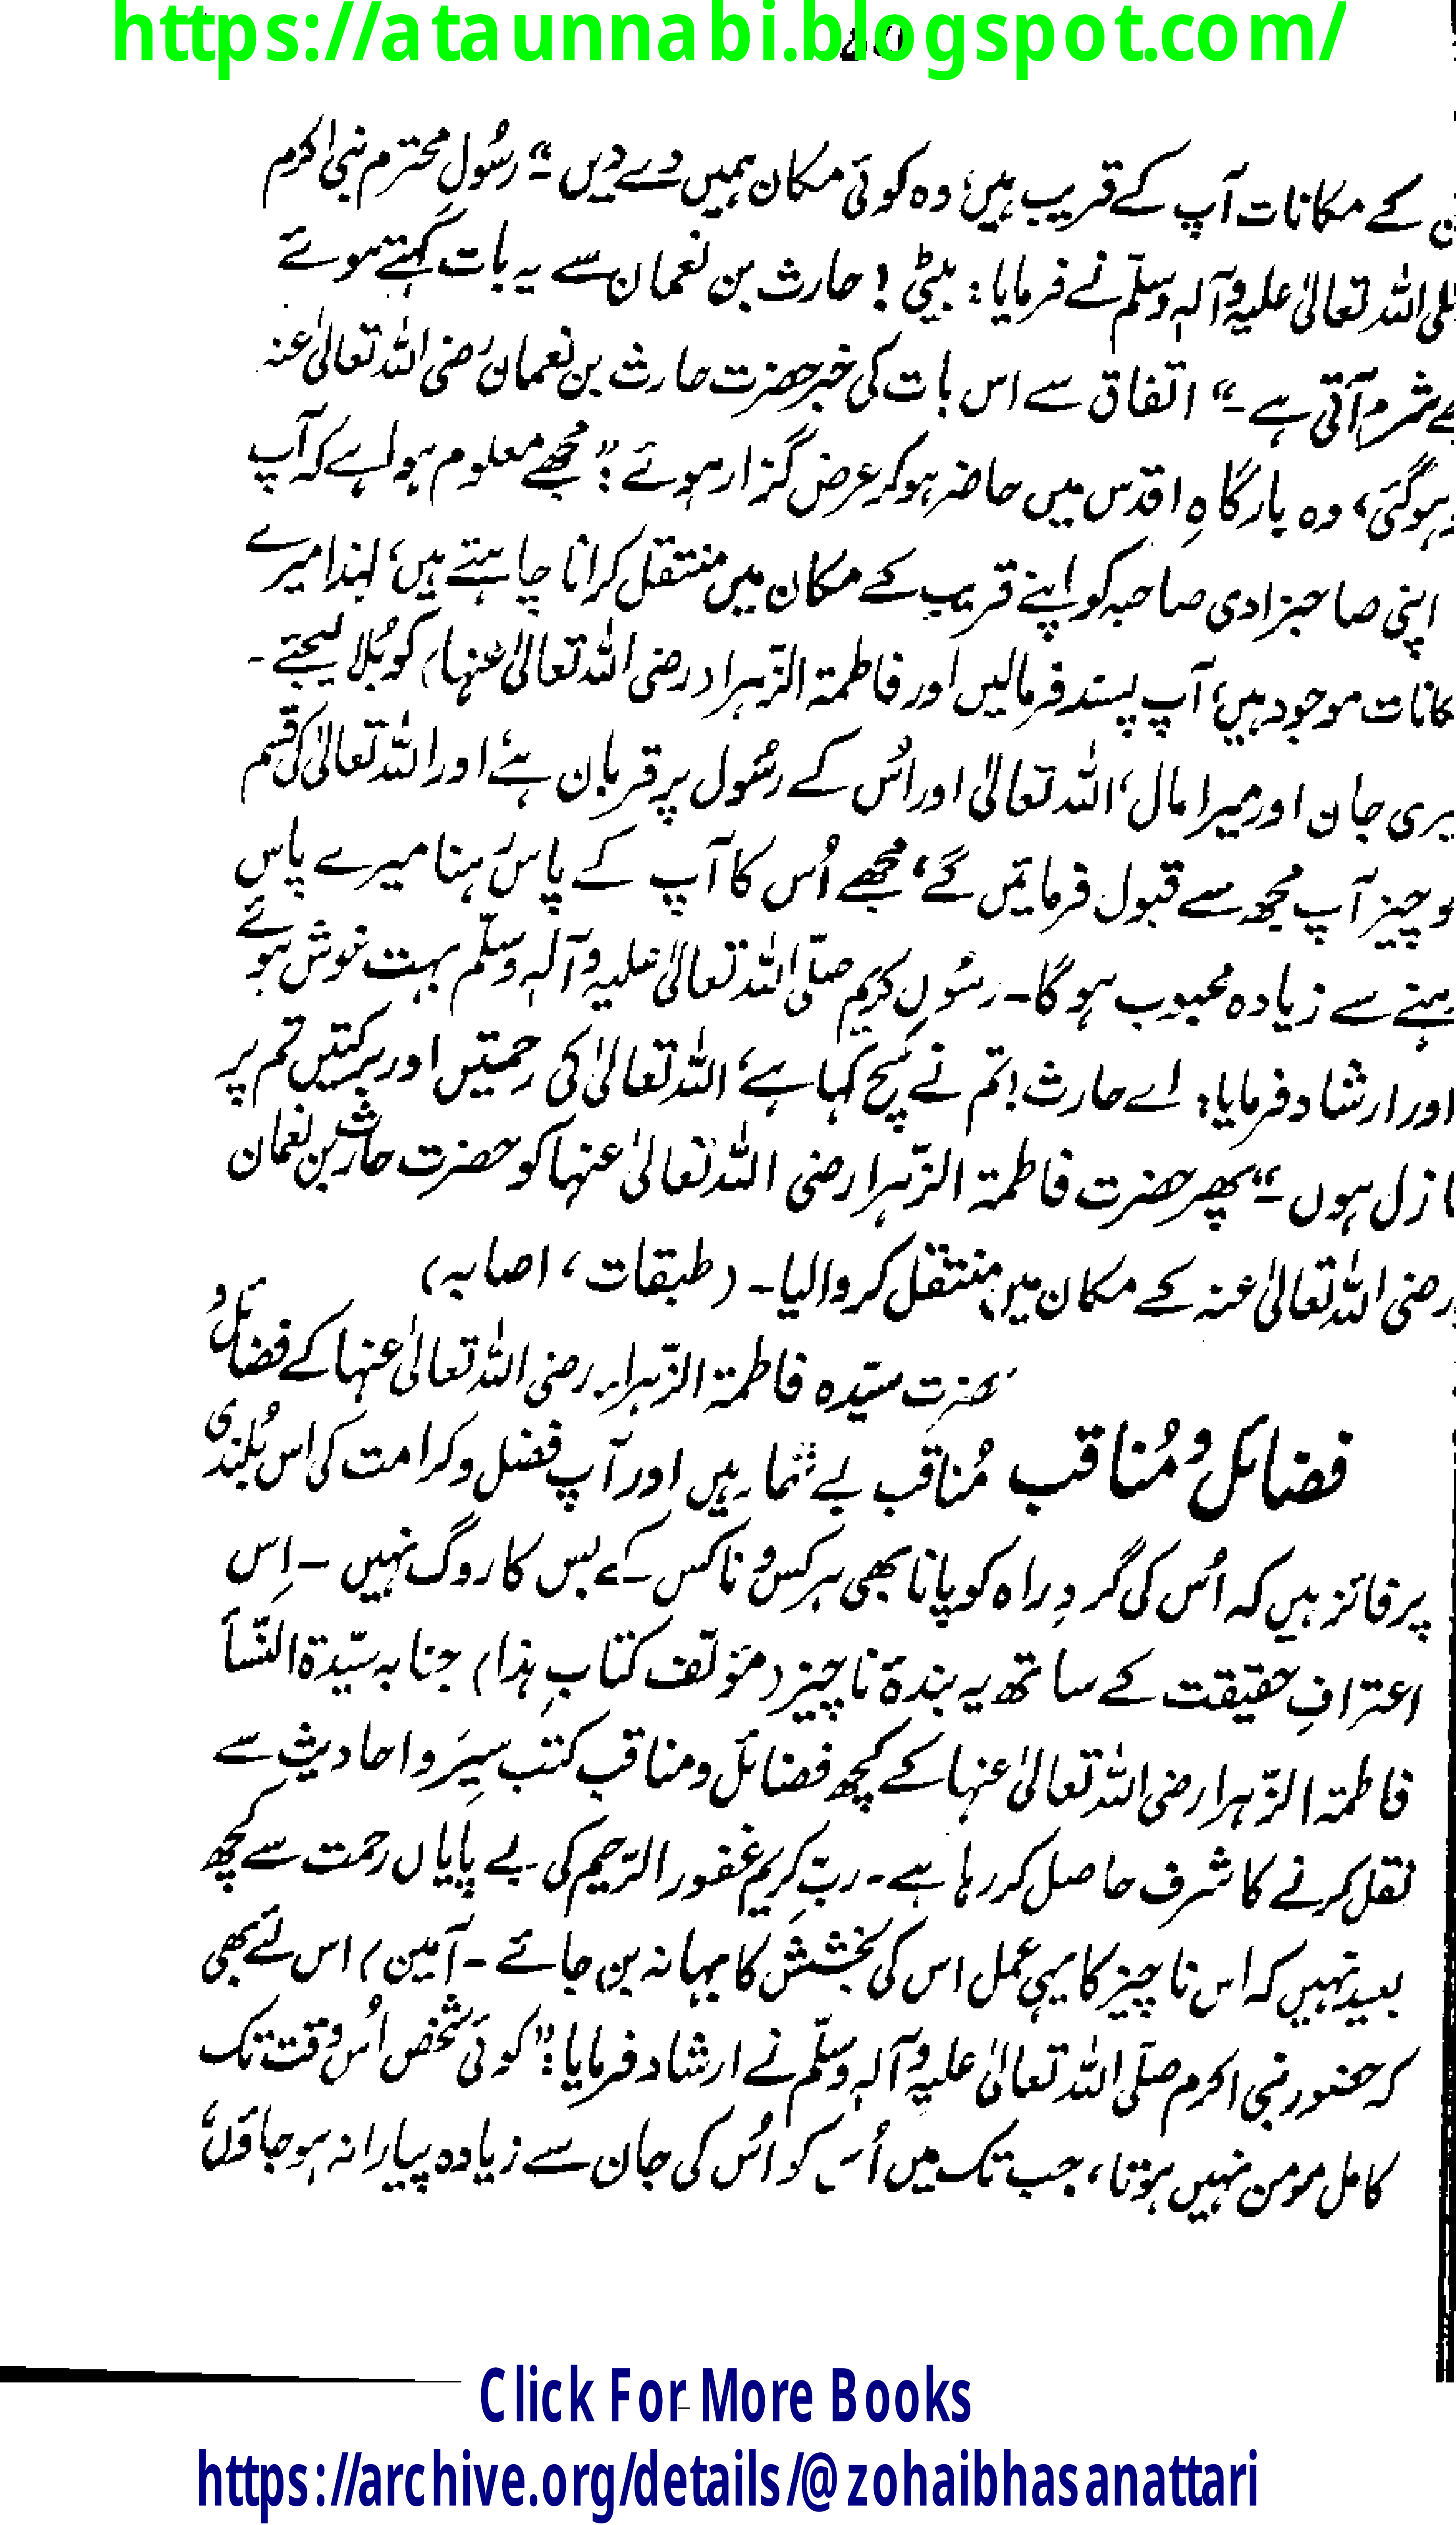 https://ataunnabi.blogspot.com/
کے مکانات آپ کے قریب ہیں، وہ کوئی مکان ہمیں دے دیں۔“ رسُولِ محترم نبی اکرم
اللہ تعالیٰ علیہ وآلہٖ وسلّم نے فرمایا: بیٹی! حارث بن نعمان سے یہ بات کہتے ہوئے
شرم آتی ہے۔“ اتفاق سے اس بات کی خبر حضرت حارث بن نعمان رضی اللہ تعالیٰ عنہ
ہوگئی، وہ بارگاہِ اقدس میں حاضر ہوکر عرض گزار ہوئے: ”مجھے معلوم ہوا ہے کہ آپ
اپنی صاحبزادی صاحبہ کو اپنے قریب کے مکان میں منتقل کرانا چاہتے ہیں، لہٰذا میرے
موجود ہیں، آپ پسند فرمالیں اور فاطمۃ الزّہرا (رضی اللہ تعالیٰ عنہا) کو بُلا لیجئے۔
جان اور میرا مال، اللہ تعالیٰ اور اُس کے رسُول پر قربان ہے، اور اللہ تعالیٰ کی قسم
چیز آپ مجھ سے قبول فرمائیں گے، مجھے اُس کا آپ کے پاس رہنا میرے پاس
رہنے سے زیادہ محبوب ہوگا۔ رسُولِ کریم صلّی اللہ تعالیٰ علیہ وآلہٖ وسلّم بہت خوش ہوئے
اور ارشاد فرمایا: اے حارث! تم نے سچ کہا ہے، اللہ تعالیٰ کی رحمتیں اور برکتیں تم پر
نازل ہوں۔“ پھر حضرت فاطمۃ الزّہرا رضی اللہ تعالیٰ عنہا کو حضرت حارث بن نعمان
رضی اللہ تعالیٰ عنہ کے مکان میں منتقل کروالیا۔ (طبقات، اصابہ)
حضرت سیّدہ فاطمۃ الزّہراء رضی اللہ تعالیٰ عنہا کے فضائل و
فضائل و مُناقب
مُناقب بے شمار ہیں اور آپ فضل و کرامت کی اس بُلندی
پر فائز ہیں کہ اُس کی گردِ راہ کو پانا بھی ہر کس و ناکس کے بس کا روگ نہیں۔ اِس
اعترافِ حقیقت کے ساتھ یہ بندۂ ناچیز (مؤلف کتابِ ہذا) جنابہ سیّدۃ النّسأ
فاطمۃ الزّہرا رضی اللہ تعالیٰ عنہا کے کچھ فضائل و مناقب کتب سِیَر و احادیث سے
نقل کرنے کا شرف حاصل کررہا ہے۔ ربِّ کریم غفور الرّحیم کی بے پایاں رحمت سے کچھ
بعید نہیں کہ اس ناچیز کا یہی عمل اس کی بخشش کا بہانہ بن جائے۔ آمین) اس لئے بھی
کہ حضور نبی اکرم صلّی اللہ تعالیٰ علیہ وآلہٖ وسلّم نے ارشاد فرمایا: ”کوئی شخص اُس وقت تک
کامل مومن نہیں ہوتا، جب تک میں اُس کو اُس کی جان سے زیادہ پیارا نہ ہوجاؤں،
Click For More Books
https://archive.org/details/@zohaibhasanattari